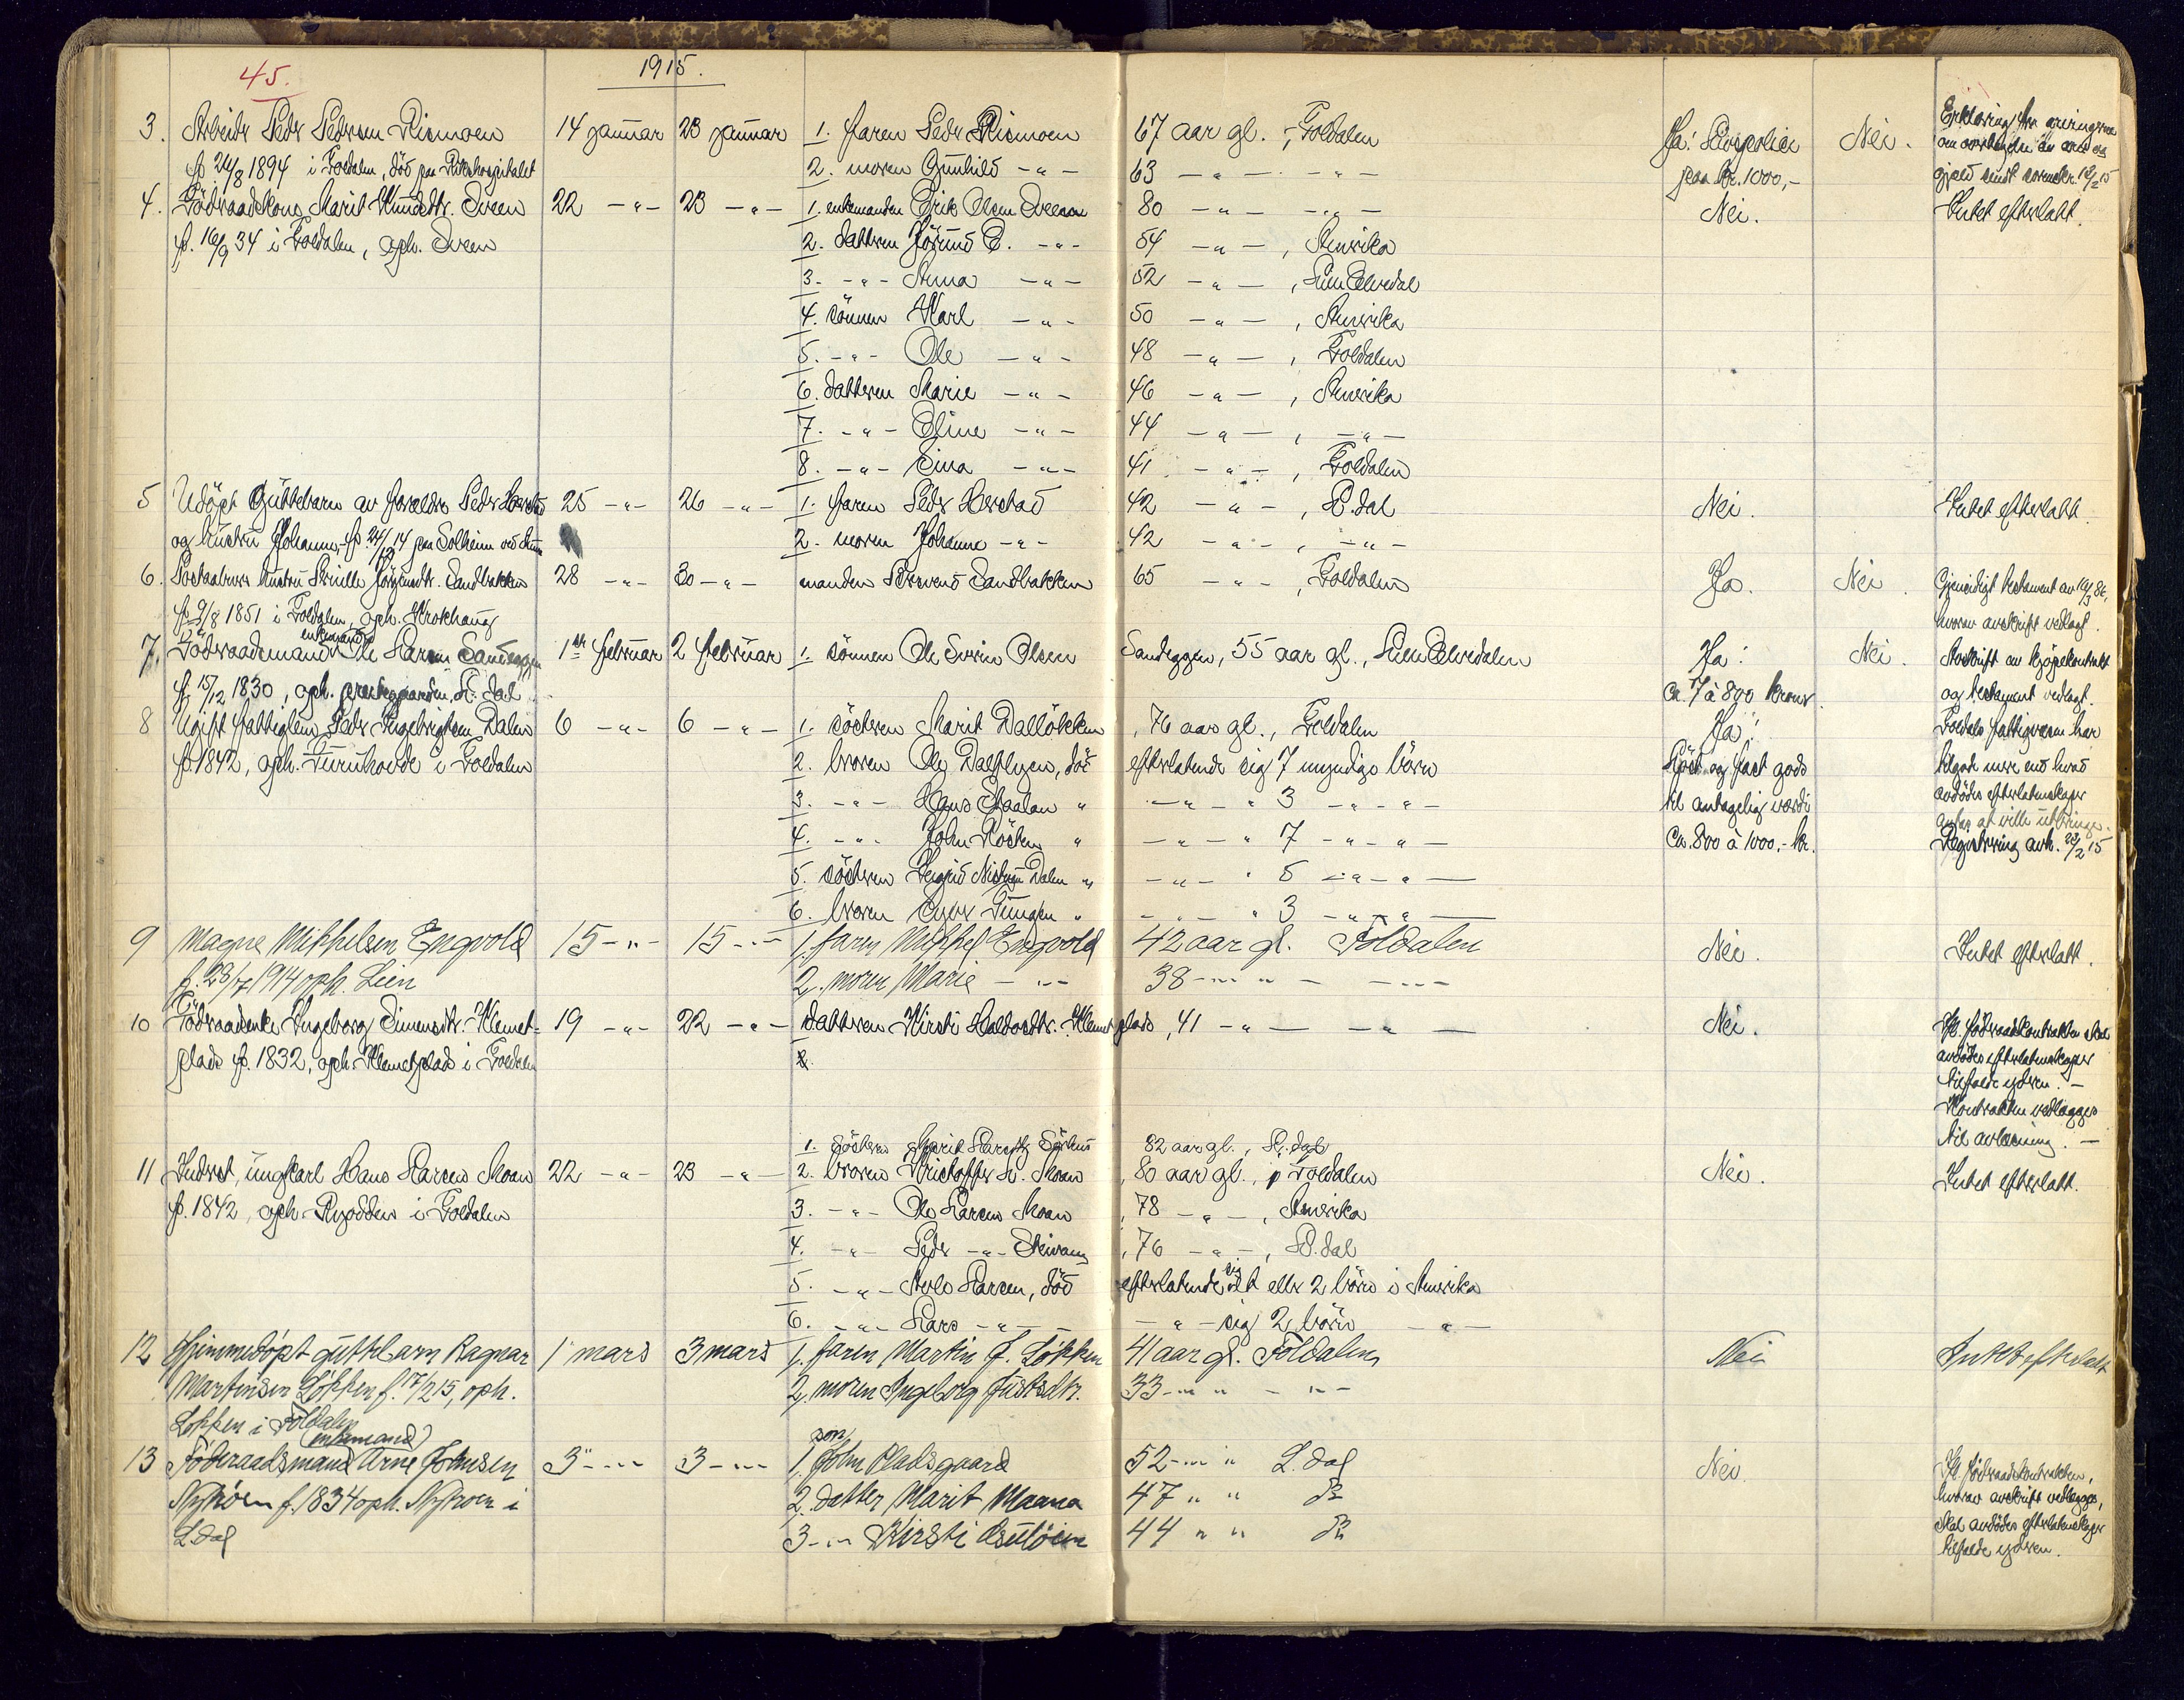 45.
1915.
3. Arbeider Peder Pedersen Rismoen 14 januar 23 januar 1. faren Peder Riismoen 67 aar gl., Foldalen Ja: Livspolice Nei. Erklæring fra arvingerne
f. 24/8 1894 i Foldalen, död paa Rikshospitalet 2. moren Gunhild -"- 63 -"- -"- paa kr. 1000,- om overtagelse av arv og
gjæld sendt sorenskr. 12/2 15
4. Föderaadskone Marit Knudsdtr. Sveen 22 -"- 23 -"- 1. enkemanden Erik Olsen Sveen 80 -"- -"- Nei. Intet efterlatt.
f. 16/9 34 i Foldalen, oph. Sveen 2. datteren Jörund E. -"- 54 -"-, Amerika
3. -"- Anna -"- 52 -"-, Lille Elvedal
4. sönnen Karl -"- 50 -"-, Amerika
5. -"- Ole -"- 48 -"-, Foldalen
6. datteren Marie -"- 46 -"-, Amerika
7. -"- Eline -"- 44 -"-, -"-
8. -"- Sina -"- 41 -"-, Foldalen
5 Udöpt guttebarn av forældre Peder Herstad 25 -"- 26 -"- 1. faren Peder Herstad 42 -"-, L.dal Nei. Intet efterlatt.
og hustru Johanne, f. 24/12 14 paa Solheim 2. moren Johanne -"- 42 -"-, -"-
6. hustru Jörgensdtr. Sandbakken 28 -"- 30 -"- manden Sandbakken 65 -"-, Foldalen Ja. Nei. Gjensidigt testament av 10/3 86,
f. 9/8 1851 i Foldalen, oph. Krokhaug hvorav avskrift vedlagt.
enkemand
7. Föderaadsmand Ole Larsen Sandeggen 1ste februar 2 februar 1. sönnen Ole Olsen Sandeggen, 55 aar gl., Lille Elvedalen Ja: Nei. Avskrift av kjöpekontrakt
f. 15/12 1830, oph. prestegaarden, L. dal. Ca. 7 à 800 kroner. og testament vedlagt.
8 Ugift fattiglem Peder Ingebrigtsen Dalen 6 -"- 6 -"- 1. söstren Marit Dallökken, 76 aar gl., Foldalen Ja: Foldals fattigvæsen har
f. 1842, oph. Furuhovde i Foldalen 2. broren Ole Dalflyen, död efterlatende sig 7 myndige börn Löst og fast gods tilgode mere end hvad
3. -"- Hans " -"- " 3 -"- " - til antagelig værdi avdödes efterlatenskaper
4. -"- John " -"- " 7 -"- " - Ca. 800 à 1000,- kr. antas at ville utbringe.
Registrering avh. 23/2 15
5. söstren Ingrid Dalen " -"- " 5 -"- " -
6. broren " -"- " 3 -"- " -
9 Magne Mikkelsen Engvold 15 -"- 15 -"- 1. faren Mikkel Engvold 42 aar gl. Foldalen Nei. Intet efterlatt.
f. 28/12 1914 oph. Lien 2. moren Marie -"- 38 -"- " - -"-
10 Föderaadsenke Ingeborg Simensdtr. Klemet- 19 -"- 22 -"- datteren Kirsti Haldosdtr. Klemetplads, 41 -"- -"- Nei. Ifl. föderaadskontrakten skal
plads f. 1832, oph. Klemetplads i Foldalen avdödes efterlatenskaper
tilfalde yderen. -
Kontrakten vedlægges
til avlæsning. -
1. söstren Marit Larsdtr. 82 aar gl., L. dal
11 Inderst, ungkarl Hans Larsen Moan 22 -"- 23 -"- 2. broren Kristoffer L. Moan, 80 aar gl., i Foldalen Nei. Intet efterlatt.
f. 1842, oph. Ryodden i Foldalen 3. -"- Ole Larsen Moan, 78 -"-, Amerika
4. -"- Peder -"- Steivang, 76 -"-, L.dal
5. -"- Larsen, död efterlatende sig et eller 2 börn i Amerika
6. -"- Lars -"- -"- sig 2 börn -"-
12 Hjemmedöpt guttebarn Ragnar 1 mars 3 mars 1. faren Martin J. Løkken 41 aar gl. Foldalen Nei Intet efterlatt
Martinsen Løkken, f. 17/2 15, oph. 2. moren Ingeborg Justsdtr. 33 -"- " - -"-
Løkken i Foldalen
(enkemand)
13 Föderaadsmand Arne Johnsen 3 -"- 3 -"- 1. søn John Pladsgaard 52 -"- " L.dal Nei. Ifl. föderaadskontrakten,
Nyhöen f. 1834 oph. Nyhöen i 2. datter Marit Maana 47 " " do hvorav avskrift vedlægges,
L.dal 3 -"- Kirsti 44 " " do skal avdödes efterlatenskaper
tilfalde yderen.